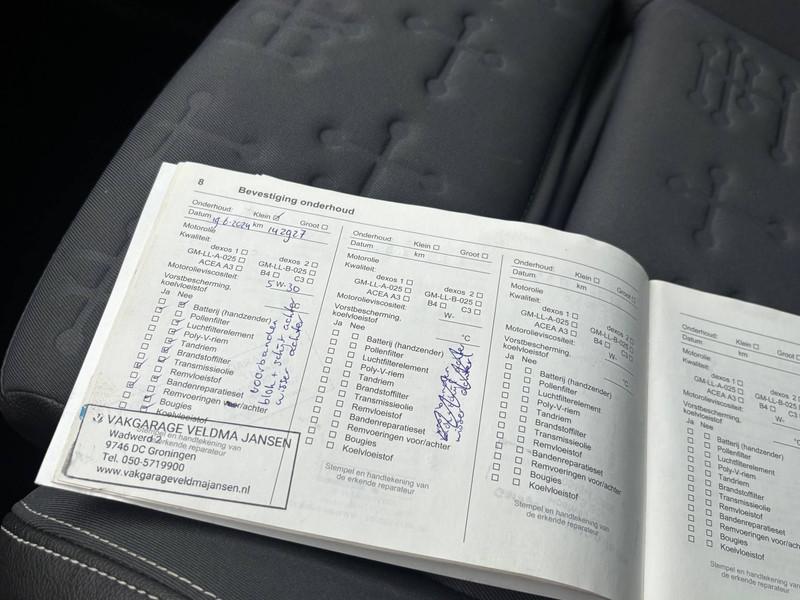 8 Bevestiging onderhoud
Onderhoud: Klein ☑ Groot ☐
Datum 19-6-2024 km 142927
Motorolie
Kwaliteit:
dexos 1 ☐ dexos 2 ☐
GM-LL-A-025 ☐ GM-LL-B-025 ☐
ACEA A3 ☐ B4 ☐ C3 ☐
Motorolieviscositeit: 5 W- 30
Vorstbescherming,
koelvloeistof
Ja Nee
Batterij (handzender)
Pollenfilter
Luchtfilterelement
Poly-V-riem
Tandriem
Brandstoffilter
Transmissieolie
Remvloeistof
Bandenreparatieset
Remvoeringen voor/achter
Bougies
Koelvloeistof
voorbanden
blok + schijf achter
wisser achter
VAKGARAGE VELDMA JANSEN
Wadwerd 2
9746 DC Groningen
Tel. 050-5719900
www.vakgaragveldmajansen.nl
Onderhoud: Klein ☐ Groot ☐
Datum km
Motorolie
Kwaliteit:
dexos 1 ☐ dexos 2 ☐
GM-LL-A-025 ☐ GM-LL-B-025 ☐
ACEA A3 ☐ B4 ☐ C3 ☐
Motorolieviscositeit: W-
Vorstbescherming,
koelvloeistof °C
Ja Nee
Batterij (handzender)
Pollenfilter
Luchtfilterelement
Poly-V-riem
Tandriem
Brandstoffilter
Transmissieolie
Remvloeistof
Bandenreparatieset
Remvoeringen voor/achter
Bougies
Koelvloeistof
wisser
Stempel en handtekening van
de erkende reparateur
Onderhoud: Klein ☐ Groot ☐
Datum km
Motorolie
Kwaliteit:
dexos 1 ☐ dexos 2 ☐
GM-LL-A-025 ☐ GM-LL-B-025 ☐
ACEA A3 ☐ B4 ☐ C3 ☐
Motorolieviscositeit: W-
Vorstbescherming,
koelvloeistof °C
Ja Nee
Batterij (handzender)
Pollenfilter
Luchtfilterelement
Poly-V-riem
Tandriem
Brandstoffilter
Transmissieolie
Remvloeistof
Bandenreparatieset
Remvoeringen voor/achter
Bougies
Koelvloeistof
Stempel en handtekening van
de erkende reparateur
Onderhoud: Klein ☐
Datum km
Motorolie
Kwaliteit:
dexos 1 ☐
GM-LL-A-025 ☐
ACEA A3 ☐ B4 ☐
Motorolieviscositeit:
Vorstbescherming,
koelvloeistof
Ja Nee
Batterij (handzender)
Pollenfilter
Luchtfilterelement
Poly-V-riem
Tandriem
Brandstoffilter
Transmissieolie
Remvloeistof
Bandenreparatieset
Remvoeringen voor/
Bougies
Koelvloeistof
Stempel en handtekening
de erkende reparateur